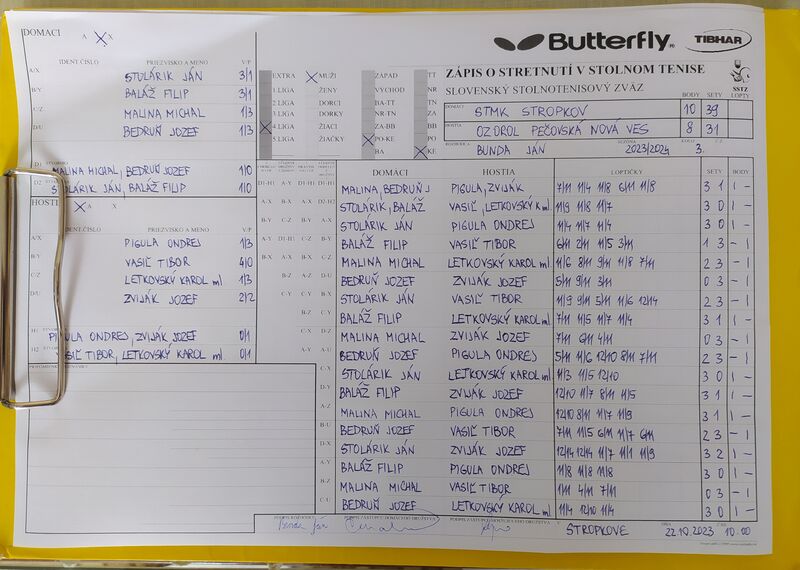 DOMACI A X X
Butterfly
TIBHAR
IDENT ČÍSLO PRIEZVISKO A MENO V/P
A/X STOLÁRIK JÁN 3/1
B/Y BALÁŽ FILIP 3/1
C/Z MALINA MICHAL 1/3
D/U BEDRUŇ JOZEF 1/3
D1 MALINA MICHAL, BEDRUŇ JOZEF 1/0
D2 STOLÁRIK JÁN, BALÁŽ FILIP 1/0
HOSTI X A X
IDENT ČÍSLO PRIEZVISKO A MENO V/P
A/X PIGULA ONDREJ 1/3
B/Y VASIĽ TIBOR 4/0
C/Z LETKOVSKÝ KAROL ml. 1/3
D/U ZVIJÁK JOZEF 2/2
H1 PIGULA ONDREJ, ZVIJÁK JOZEF 0/1
H2 VASIĽ TIBOR, LETKOVSKÝ KAROL ml. 0/1
EXTRA X MUŽI ZÁPAD TT
1.LIGA ŽENY VÝCHOD NR
2.LIGA DORCI BA-TT TN
3.LIGA DORKY NR-TN ZA
X 4.LIGA ŽIACI ZA-BB BB
5.LIGA ŽIAČKY X PO-KE PO
BA X KE
ZÁPIS O STRETNUTÍ V STOLNOM TENISE
SLOVENSKÝ STOLNOTENISOVÝ ZVÄZ
SSTZ
BODY SETY LOPTY
DOMÁCI STMK STROPKOV 10 39
HOSTIA OZ OROL PEČOVSKÁ NOVÁ VES 8 31
ROZHODCA BUNDA JÁN SEZÓNA 2023/2024 KOLO 3.
DOMACI HOSTIA LOPTIČKY SETY BODY
MALINA, BEDRUŇ J PIGULA, ZVIJÁK 7/11 11/4 11/8 6/11 11/8 3 1 1 -
STOLÁRIK, BALÁŽ VASIĽ, LETKOVSKÝ K ml. 11/9 11/8 11/7 3 0 1 -
STOLÁRIK JÁN PIGULA ONDREJ 11/4 11/7 11/4 3 0 1 -
BALÁŽ FILIP VASIĽ TIBOR 6/11 2/11 11/5 3/11 1 3 - 1
MALINA MICHAL LETKOVSKÝ KAROL ml. 11/6 8/11 9/11 11/8 7/11 2 3 - 1
BEDRUŇ JOZEF ZVIJÁK JOZEF 5/11 9/11 3/11 0 3 - 1
STOLÁRIK JÁN VASIĽ TIBOR 11/9 9/11 5/11 11/6 12/14 2 3 - 1
BALÁŽ FILIP LETKOVSKÝ KAROL ml. 7/11 11/5 11/7 11/4 3 1 1 -
MALINA MICHAL ZVIJÁK JOZEF 7/11 6/11 4/11 0 3 - 1
BEDRUŇ JOZEF PIGULA ONDREJ 5/11 11/6 12/10 8/11 7/11 2 3 - 1
STOLÁRIK JÁN LETKOVSKÝ KAROL ml. 11/3 11/5 12/10 3 0 1 -
BALÁŽ FILIP ZVIJÁK JOZEF 12/10 11/7 8/11 11/5 3 1 1 -
MALINA MICHAL PIGULA ONDREJ 12/10 8/11 11/7 11/9 3 1 1 -
BEDRUŇ JOZEF VASIĽ TIBOR 7/11 11/5 6/11 11/7 6/11 2 3 - 1
STOLÁRIK JÁN ZVIJÁK JOZEF 12/14 12/14 11/7 11/1 11/9 3 2 1 -
BALÁŽ FILIP PIGULA ONDREJ 11/8 11/8 11/8 3 0 1 -
MALINA MICHAL VASIĽ TIBOR 1/11 4/11 7/11 0 3 - 1
BEDRUŇ JOZEF LETKOVSKÝ KAROL ml. 11/4 12/10 11/4 3 0 1 -
Bunda Ján
V STROPKOVE DŇA 22.10.2023 10.00